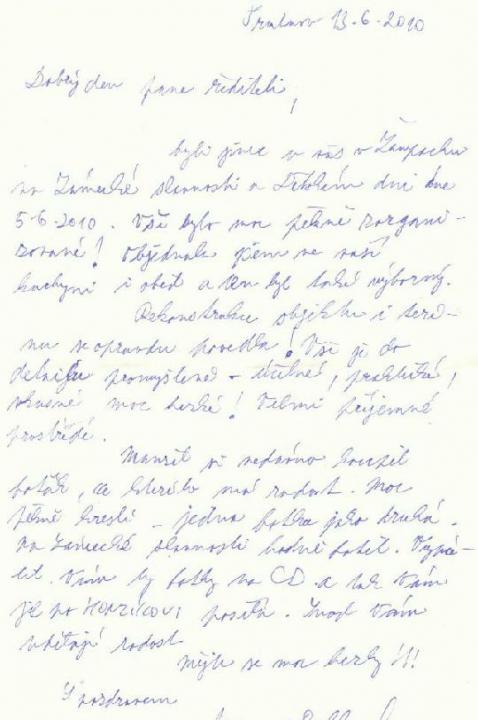 Trutnov 13.6.2010
Dobrý den pane řediteli,
byli jsme u vás v Žampachu
na Zámecké slavnosti a dne
5.6.2010. Vše bylo moc pěkně zorgani-
zované! Objednali jsem ve vaší
kuchyni i oběd a ten byl také výborný.
Rekonstrukce objektu i teré-
nu se opravdu povedla! Vše je do
detailu promyšlené - účelné, praktické,
vkusné moc hezké! Velmi příjemné
prostředí.
Manžel si nedávno koupil
foťák, ze kterého má radost. Moc
pěkně kreslí - jedna fotka jako druhá.
Na Zámecké slavnosti hodně fotil. Vypá-
lil Vám ty fotky na CD a tak Vám
je po posílá. Snad Vám
udělají radost
Mějte se moc hezky
S pozdravem